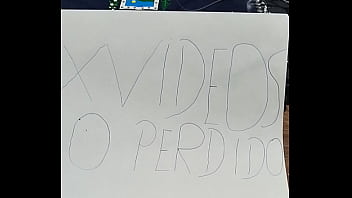 XVIDEOS
O PERDIDO